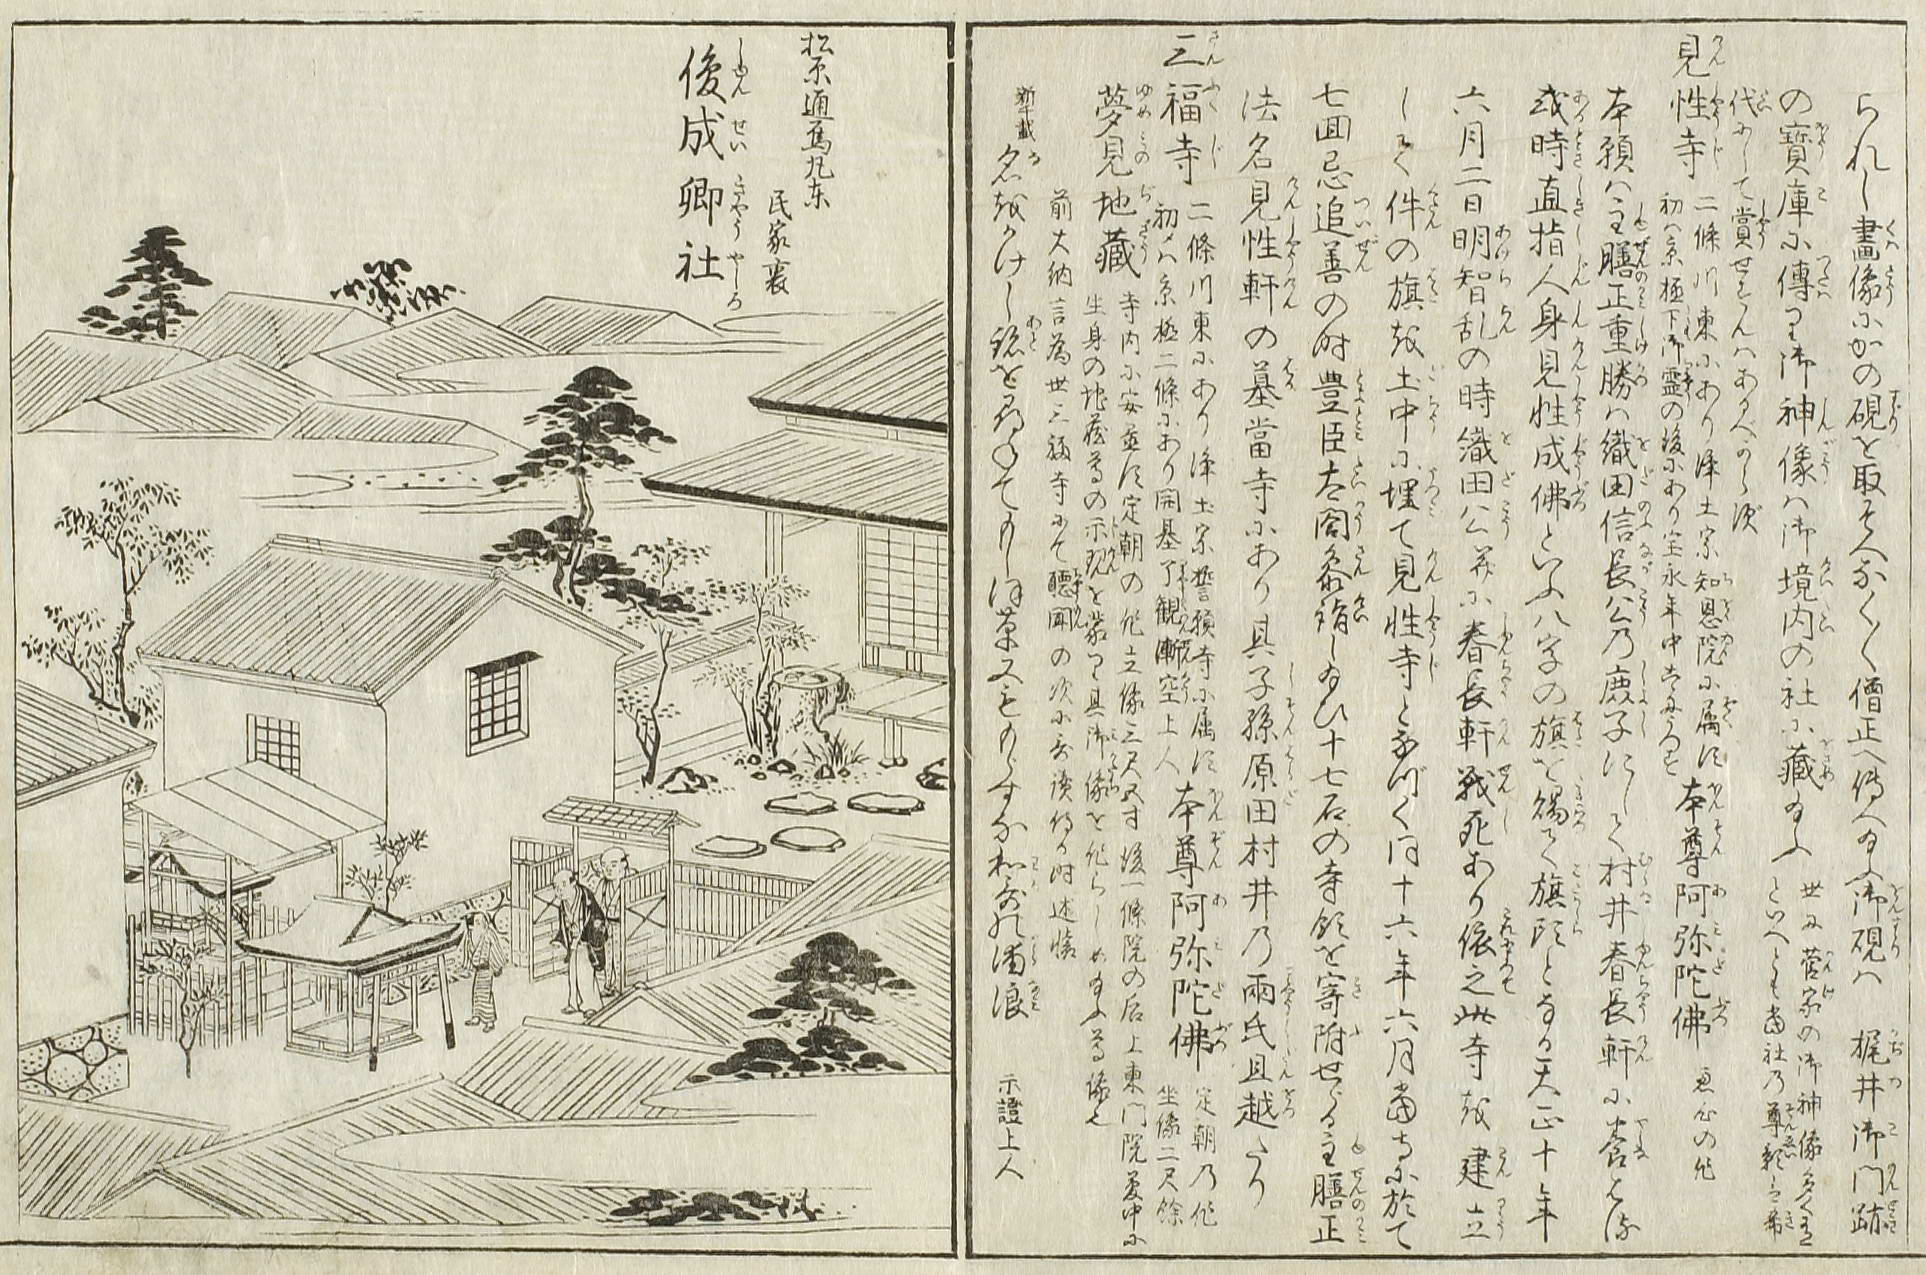 られし畫像にかの硯を取そへなく〳〵僧正へ傳へ給ふ御硯は梶井御門跡
の寶庫に傳り御神像は御境内の社に藏給ふ
世に菅家の御神像多く
といへども當社乃尊影は希
代にして賞せずんはあるべからず
見性寺 二條川東にあり浄土宗知恩院に属す
初は京極下御霊の後にあり宝永年中
本尊阿弥陀佛 恵心の作
本願は主膳正重勝は織田信長公乃庶子にして村井春長軒に養はる
或時直指人身見性成佛といふ八字の旗を賜て旗頭となる天正十年
六月二日明智乱の時織田公并に春長軒戦死あり依之此寺を建立
して件の旗を土中に埋て見性寺となづく同十六年六月當寺に於て
七回忌追善の時豊臣太閤参詣し給ひ十七石の寺領を寄附せらる主膳正
法名見性軒の墓當寺にあり其子孫原田村井乃両氏旦越たり
三福寺 二條川東にあり浄土宗誓願寺に属す
初めは京極二條にあり開基了観漸空上人
本尊阿弥陀佛 定朝乃作
坐像二尺餘
夢見地藏 寺内に安置す定朝の作立像三尺五寸後一條院の后上東門院夢中に
生身の地藏尊の示現を蒙り其御像を作らしめ給ふ尊像也
前大納言為世三福寺にて聴聞の次に歌讀侍る時述懐
新千載 名をかけし跡を尋ねてもしほ草又もかくすか和歌の浦浪 示證上人
松原通烏丸東
民家裏
俊成卿社